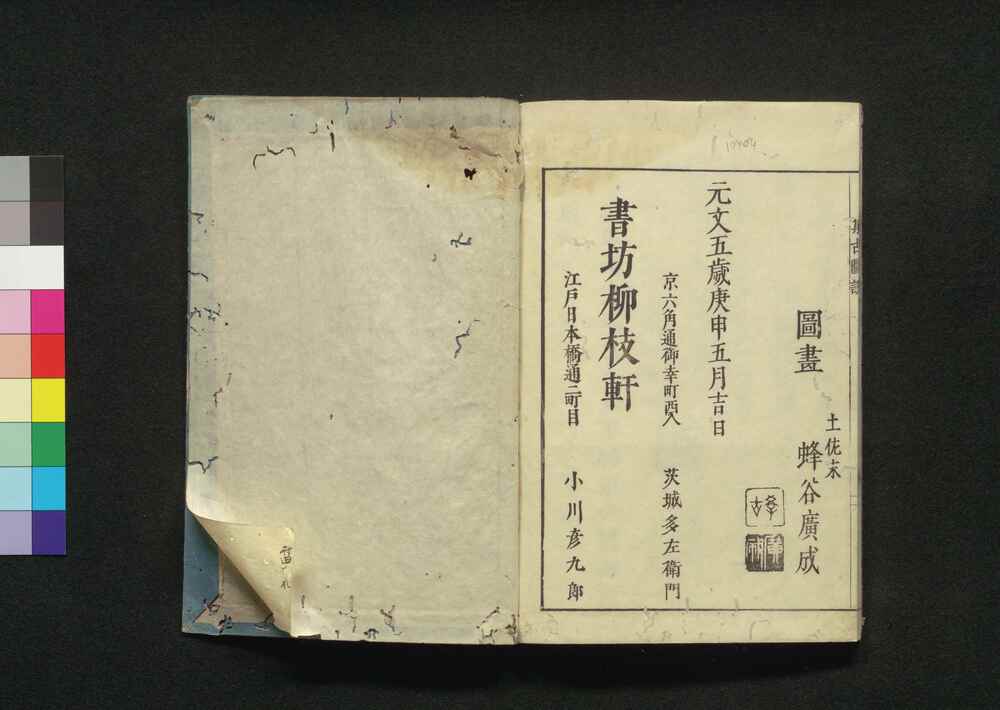 圖畫
土佐末
蜂谷廣成
元文五歲庚申五月吉日
京六角通御幸町西入
茨城多左衛門
書坊柳枝軒
江戸日本橋通二町目
小川彦九郎